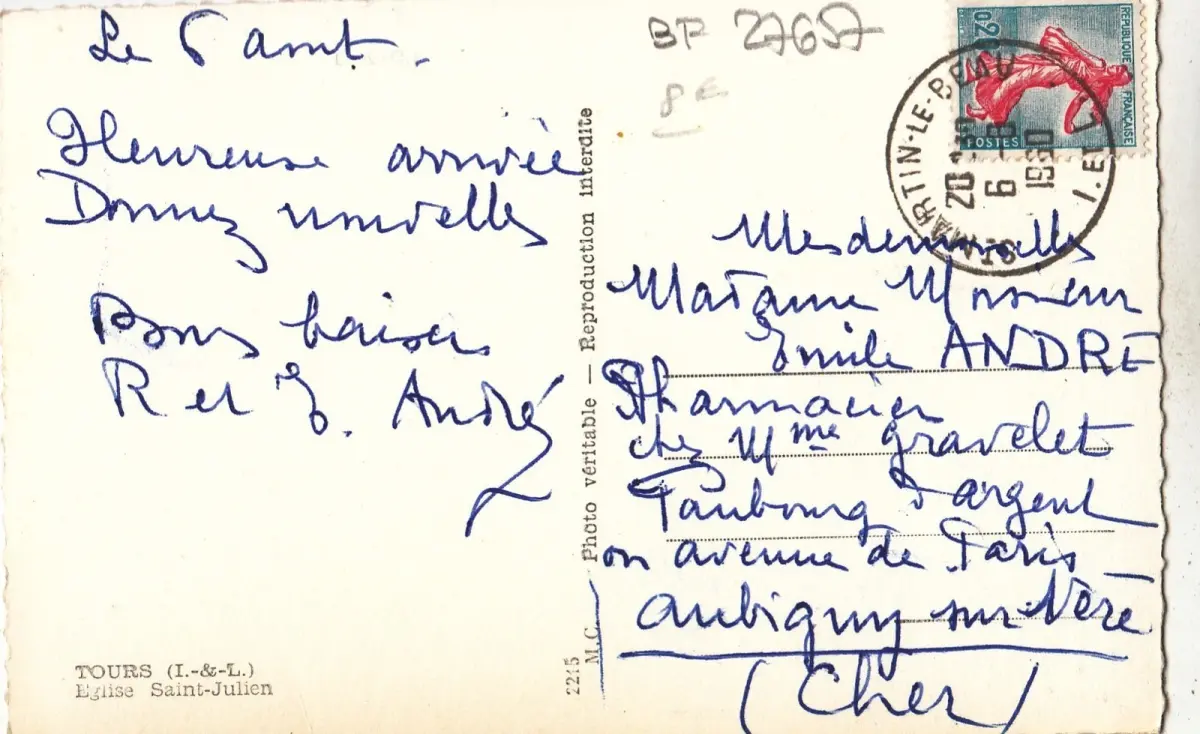 Le 6 aout.
Heureuse arrivée
Donnez nouvelles
Bons baisers
R et E. André
TOURS (I.-&-L.)
Eglise Saint-Julien
2215
M.C. Photo véritable — Reproduction interdite
BP 27657
8€
REPUBLIQUE FRANÇAISE
0,20
POSTES
ST-MARTIN-LE-BEAU
I. ET L.
20
6-8
1960
Mesdemoiselles
Madame Monsieur
Emile ANDRE
Pharmacien
chez Mme Gravelet
Faubourg d'argent
ou avenue de Paris
Aubigny sur Nère
(Cher)